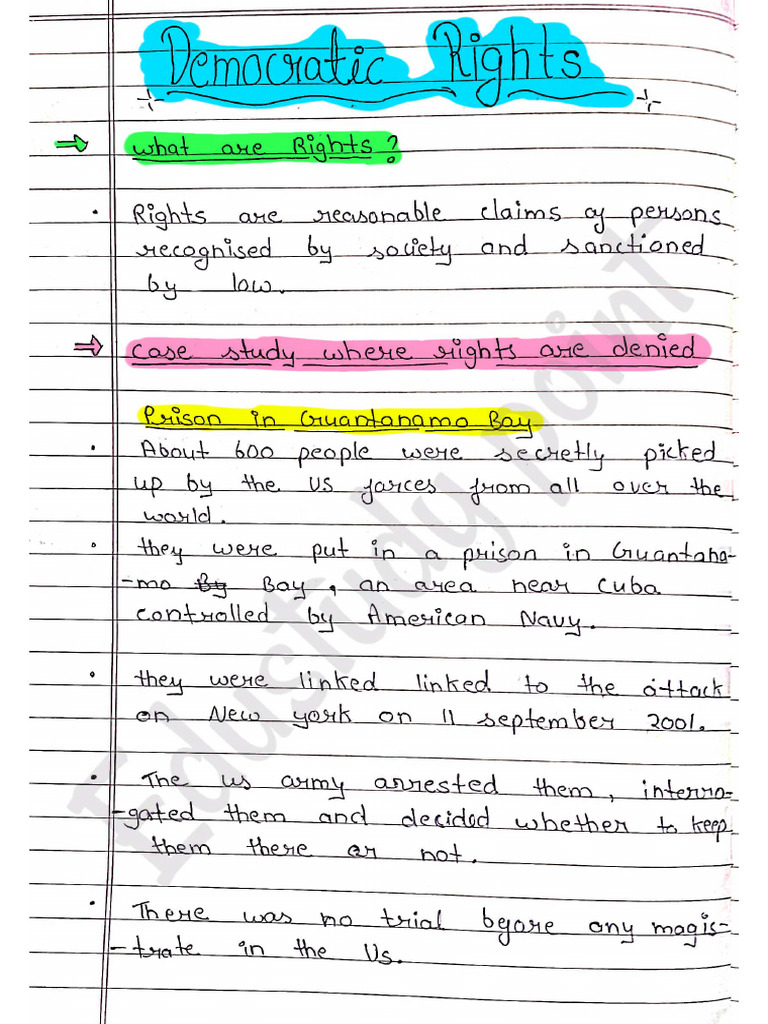 Democratic Rights
What are Rights?
Rights are reasonable claims of persons
recognised by society and sanctioned
by low.
case study where rights are denied
Prison in Guantanamo Bay
About 600 people were secretly picked
up by the US forces from all over the
world.
they were put in a prison in Guantana-
-mo By Bay, an area near Cuba
controlled by American Navy.
they were linked linked to the attack
on New york on 11 september 2001.
The us army arrested them, interro-
-gated them and decided whether to keep
them there or not.
There was no trial before any magis-
-trate in the Us.
Edustudy point